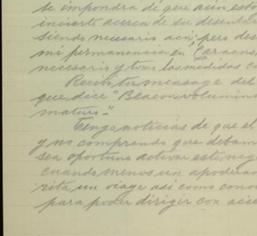 se impondrá de que aún esto
incierto acerca de su desenla
siendo necesario acá; pero des
mi permanencia en "Caracas
necesario y tomé las medidas co
Recibí tu mensage del
que dice "Beacon volumino
maturo."
Tengo noticias de que el
y no comprendo que debam
sea oportuno activar este neg
cuando menos un apoderad
rita un viage así como cono
para poder dirigir con acie